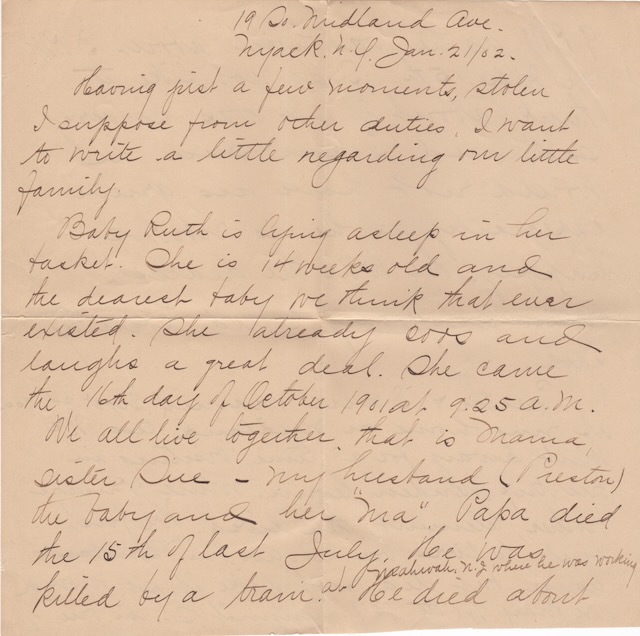 19 So. Midland Ave.
Nyack. N.Y. Jan. 21/02.
Having just a few moments, stolen
I suppose from other duties, I want
to write a little regarding our little
family.
Baby Ruth is lying asleep in her
basket. She is 14 weeks old and
the dearest baby we think that ever
existed. She already coos and
laughs a great deal. She came
the 16th day of October 1901 at 9.25 a.m.
We all live together, that is Mama,
sister Sue - my husband (Preston)
the baby and her "Ma". Papa died
the 15th of last July. He was
killed by a train. at Mahwah, N.J. where he was working
He died about